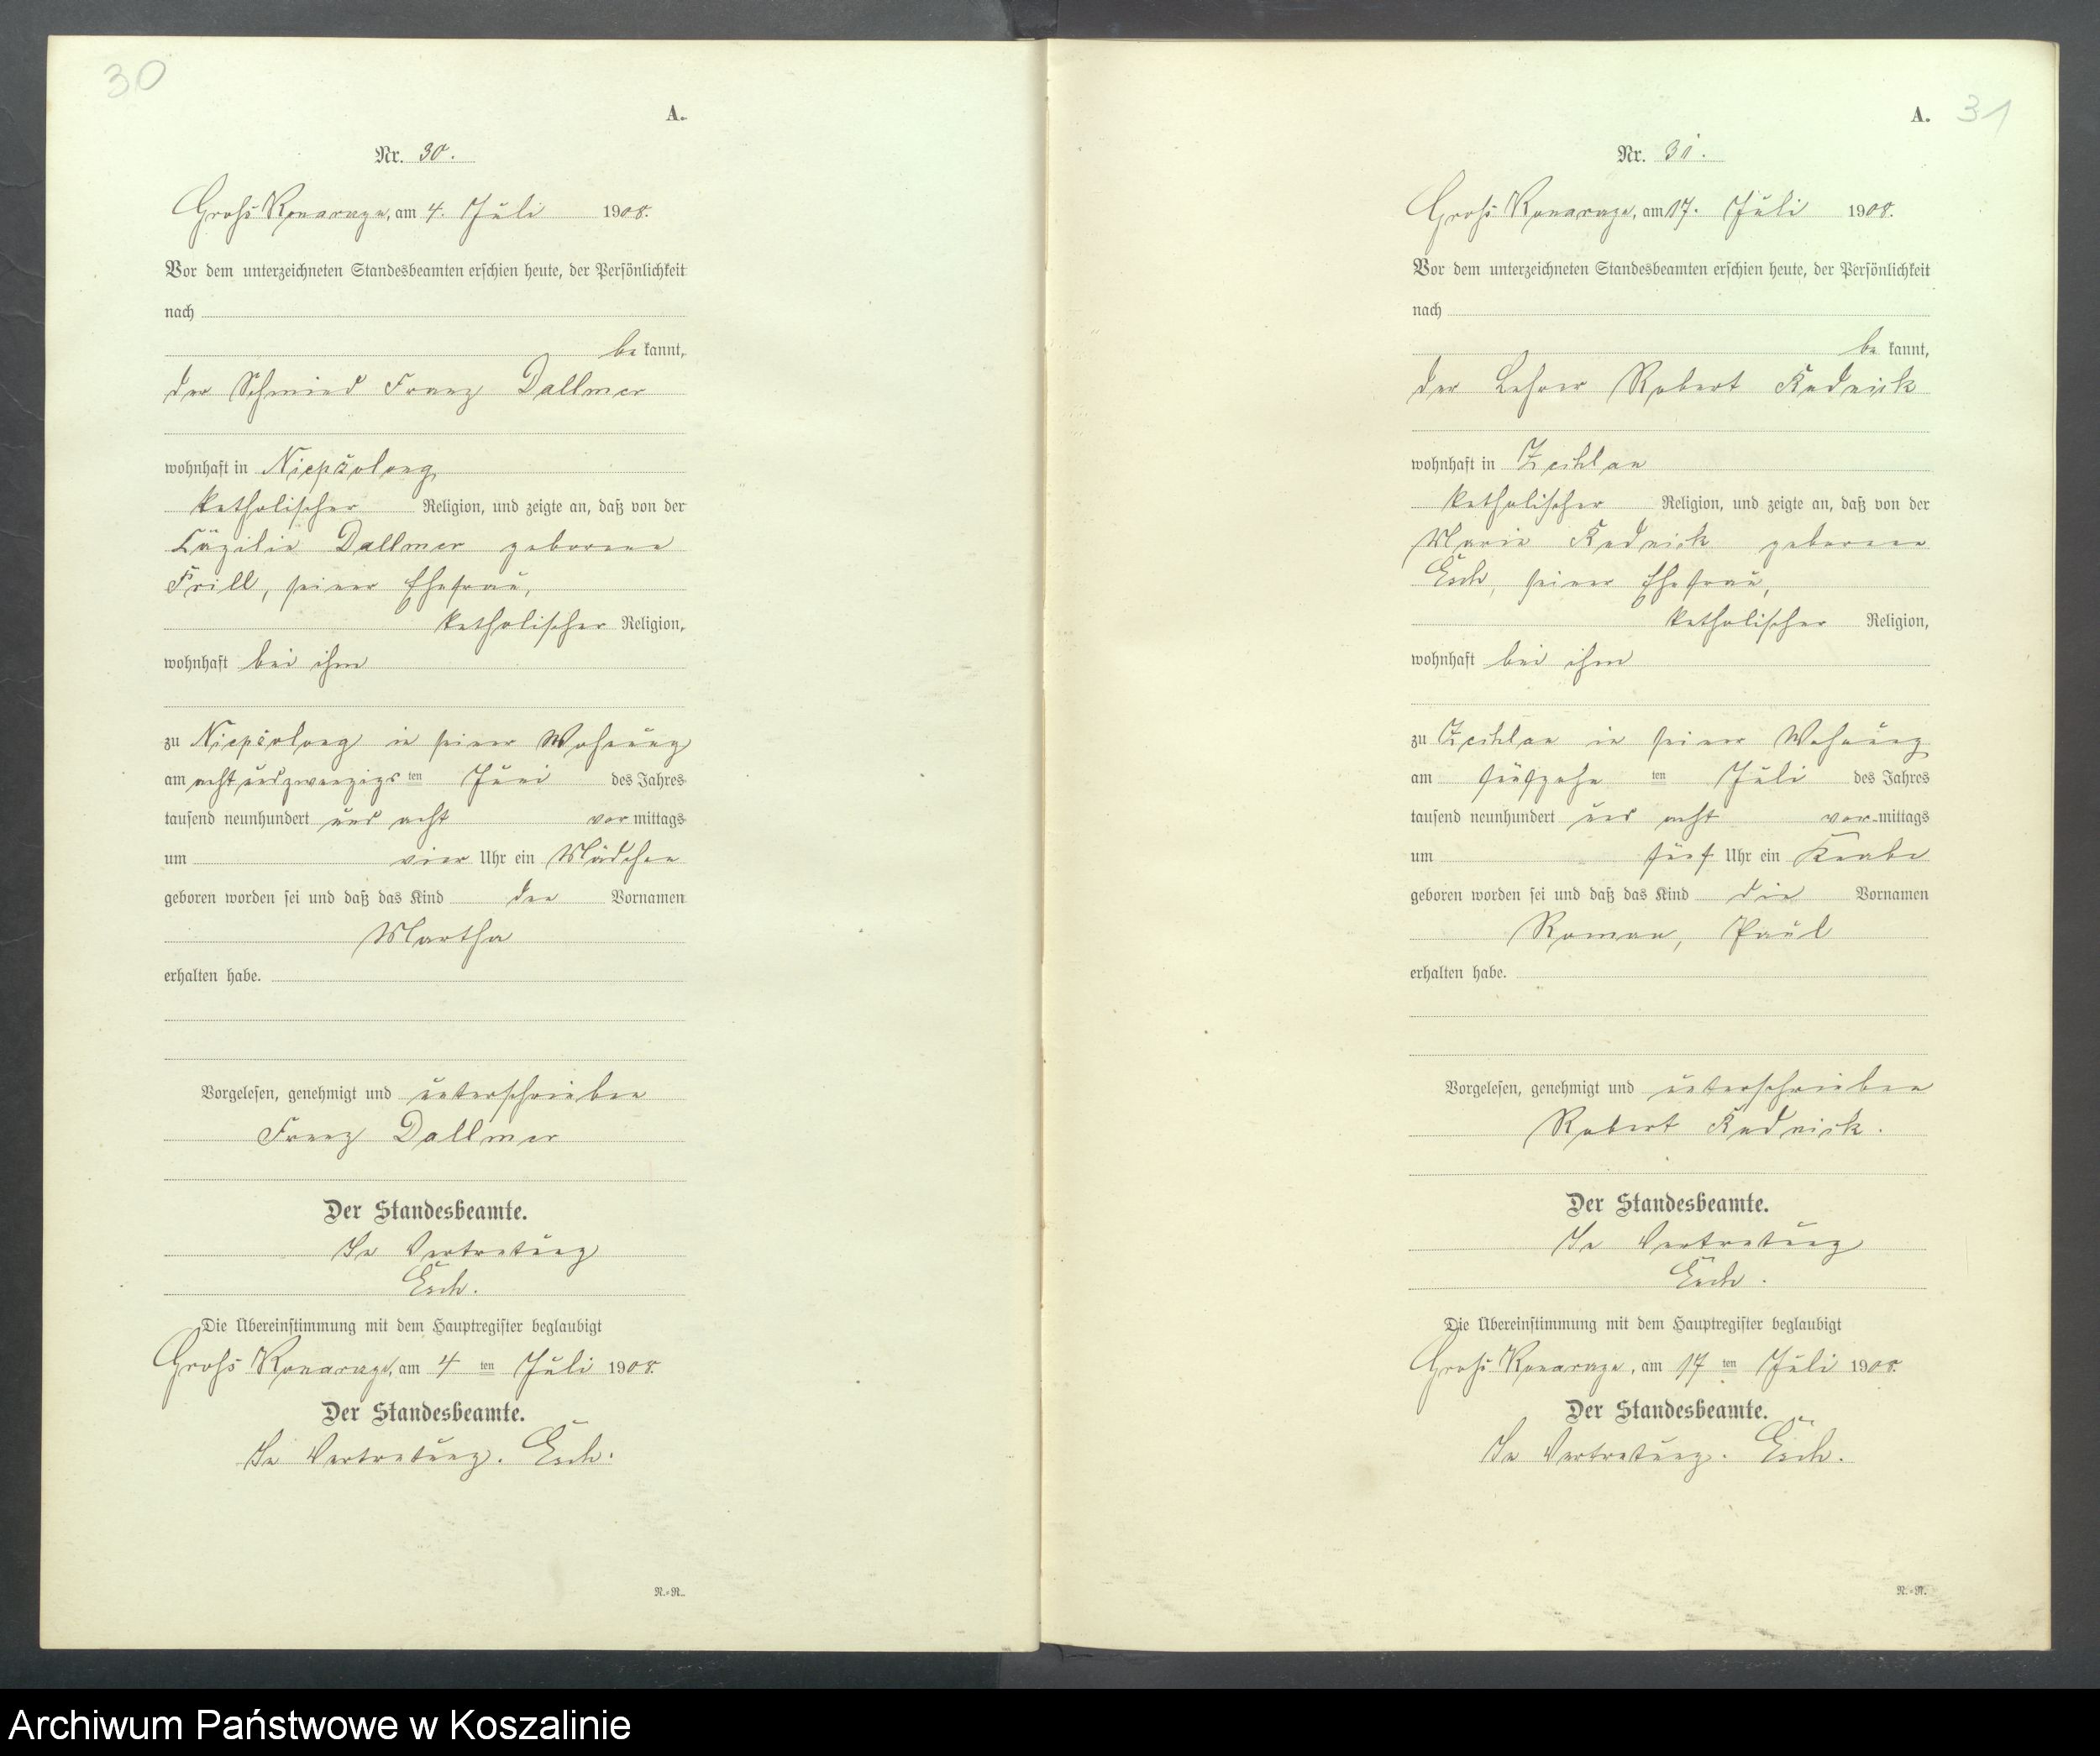 30
A.
Nr. 30.
Groß Konarczyn, am 4. Juli 1908.
Vor dem unterzeichneten Standesbeamten erschien heute, der Persönlichkeit
nach
be kannt,
der Schmied Franz Dallmer
wohnhaft in
katholischer Religion, und zeigte an, daß von der
Cäzilie Dallmer geborene
Prill, seiner Ehefrau,
katholischer Religion,
wohnhaft bei ihm
zu in seiner Wohnung
am acht und zwanzigsten Juni des Jahres
tausend neunhundert und acht vor mittags
um vier Uhr ein Mädchen
geboren worden sei und daß das Kind den Vornamen
Martha
erhalten habe.
Vorgelesen, genehmigt und unterschrieben
Franz Dallmer
Der Standesbeamte.
In Vertretung
Esch.
Die Übereinstimmung mit dem Hauptregister beglaubigt
Groß Konarczyn, am 4 ten Juli 1908.
Der Standesbeamte.
In Vertretung. Esch.
R.=R.
A. 31
Nr. 31.
Groß Konarczyn, am 17. Juli 1908.
Vor dem unterzeichneten Standesbeamten erschien heute, der Persönlichkeit
nach
be kannt,
der Lehrer Robert Rudnick
wohnhaft in Zechlau
katholischer Religion, und zeigte an, daß von der
Marie Rudnick geborene
Esch, seiner Ehefrau,
katholischer Religion,
wohnhaft bei ihm
zu Zechlau in seiner Wohnung
am fünfzehn ten Juli des Jahres
tausend neunhundert und acht vor mittags
um fünf Uhr ein Knabe
geboren worden sei und daß das Kind die Vornamen
Roman, Paul
erhalten habe.
Vorgelesen, genehmigt und unterschrieben
Robert Rudnick.
Der Standesbeamte.
In Vertretung
Esch.
Die Übereinstimmung mit dem Hauptregister beglaubigt
Groß Konarczyn, am 17 ten Juli 1908.
Der Standesbeamte.
In Vertretung. Esch.
R.=R.
Archiwum Państwowe w Koszalinie